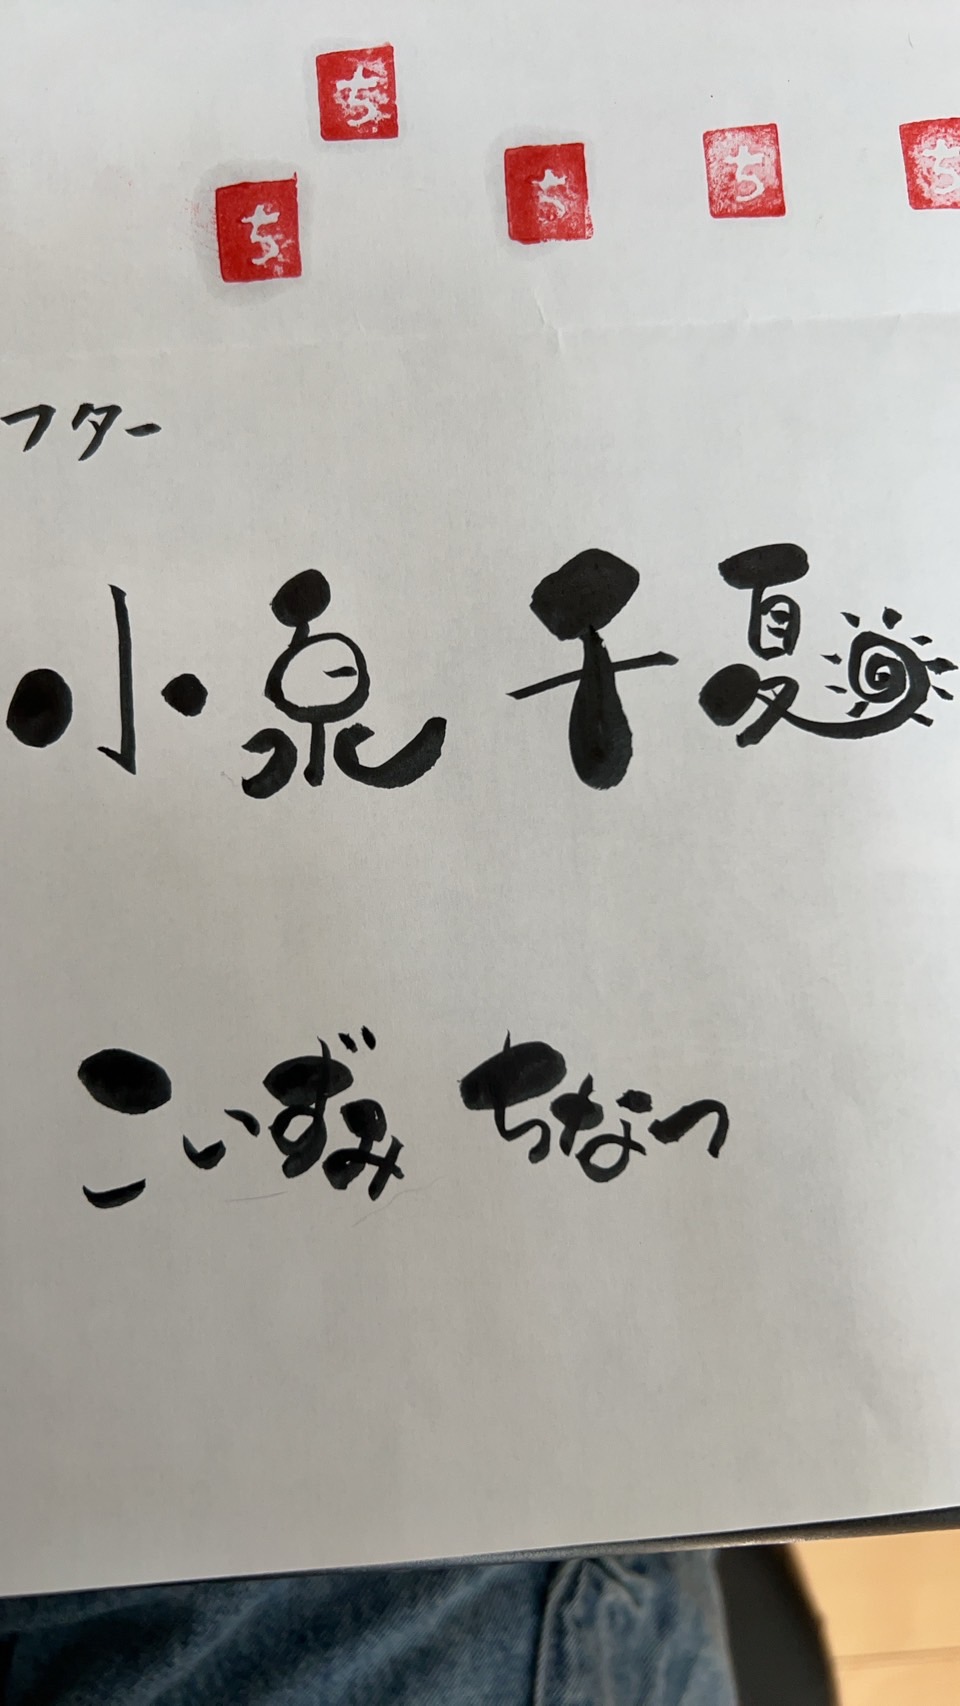 ち
ち ち ち ち
フター
小泉 千夏
こいずみ ちなつ